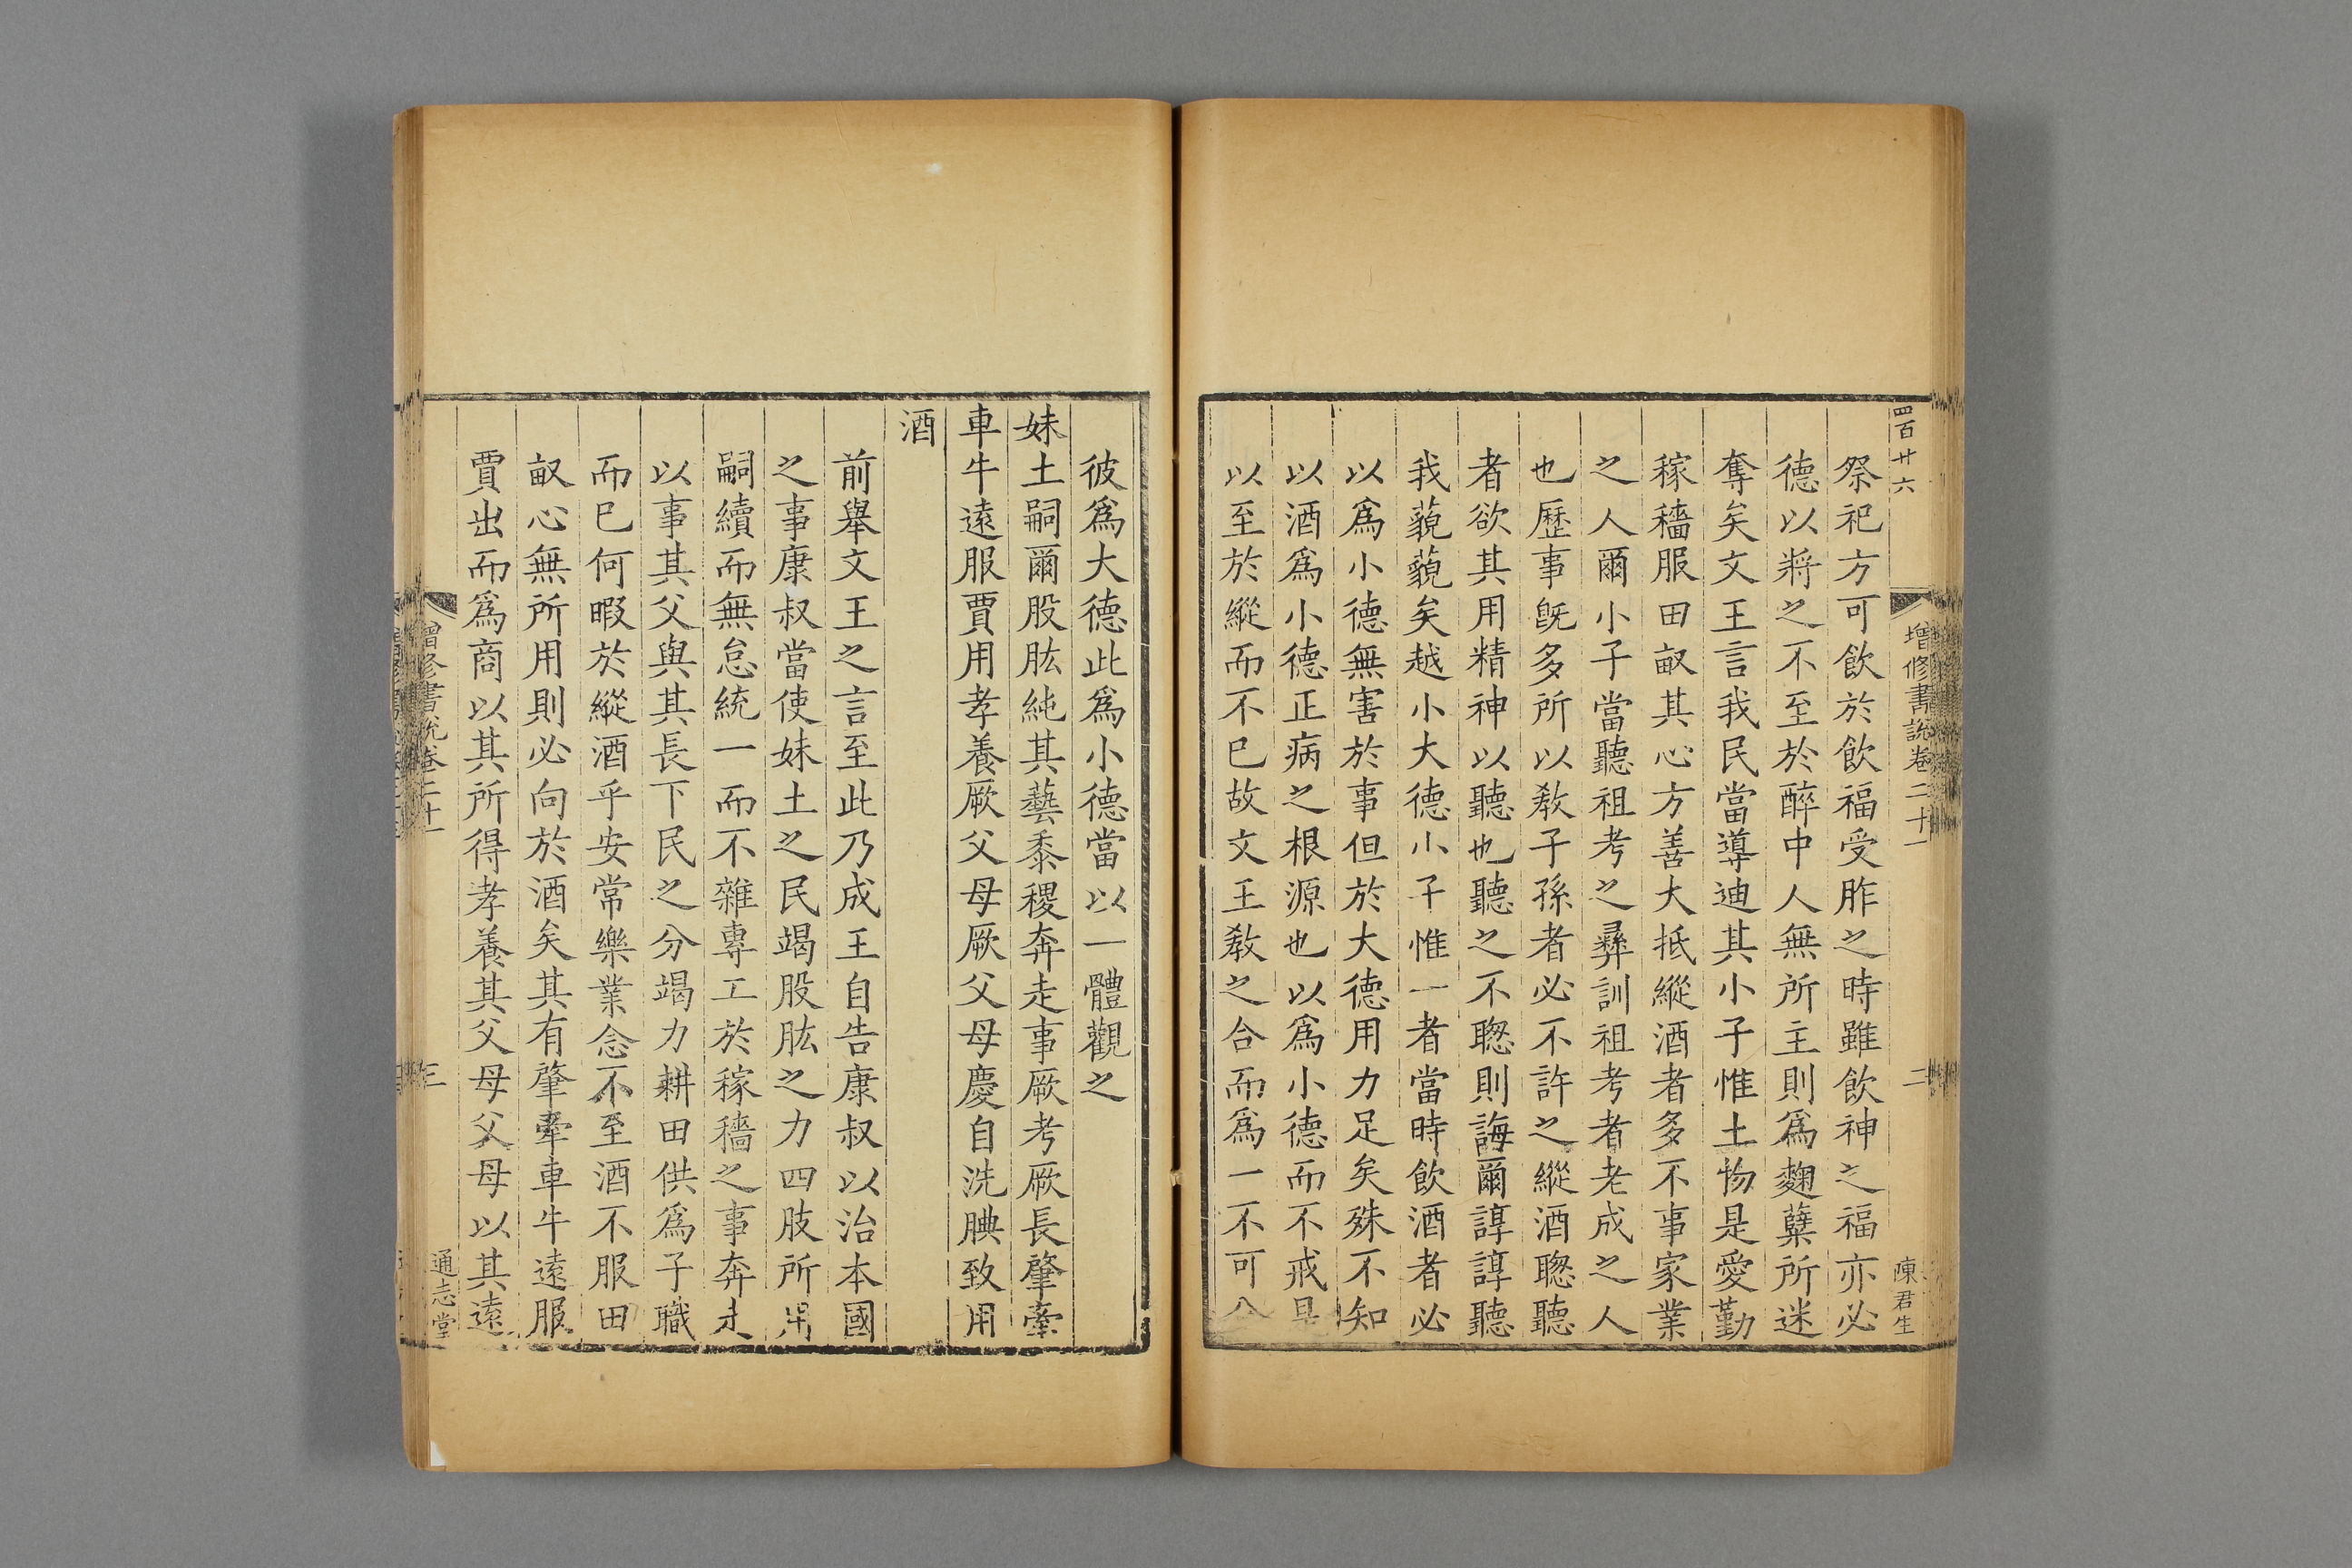 四百廿六
增修書說卷二十一
二
陳君生
祭祀方可飲於飲福受胙之時雖飲神之福亦必
德以將之不至於醉中人無所主則爲麴糵所迷
奪矣文王言我民當導迪其小子惟土物是愛勤
稼穡服田畝其心方善大抵縱酒者多不事家業
之人爾小子當聽祖考之彝訓祖考者老成之人
也歷事旣多所以敎子孫者必不許之縱酒聦聽
者欲其用精神以聽也聽之不聦則誨爾諄諄聽
我藐藐矣越小大德小子惟一者當時飲酒者必
以爲小德無害於事但於大德用力足矣殊不知
以酒爲小德正病之根源也以爲小德而不戒是
以至於縱而不已故文王敎之合而爲一不可八
彼爲大德此爲小德當以一體觀之
妹土嗣爾股肱純其藝黍稷奔走事厥考厥長肇牽
車牛遠服賈用孝養厥父母厥父母慶自洗腆致用
酒
前舉文王之言至此乃成王自告康叔以治本國
之事康叔當使妹土之民竭股肱之力四肢所用
嗣續而無怠統一而不雜專工於稼穡之事奔走
以事其父與其長下民之分竭力耕田供爲子職
而已何暇於縱酒乎安常樂業念不至酒不服田
畝心無所用則必向於酒矣其有肇牽車牛遠服
賈出而爲商以其所得孝養其父母父母以其遠
增修書說卷二十一
三
通志堂